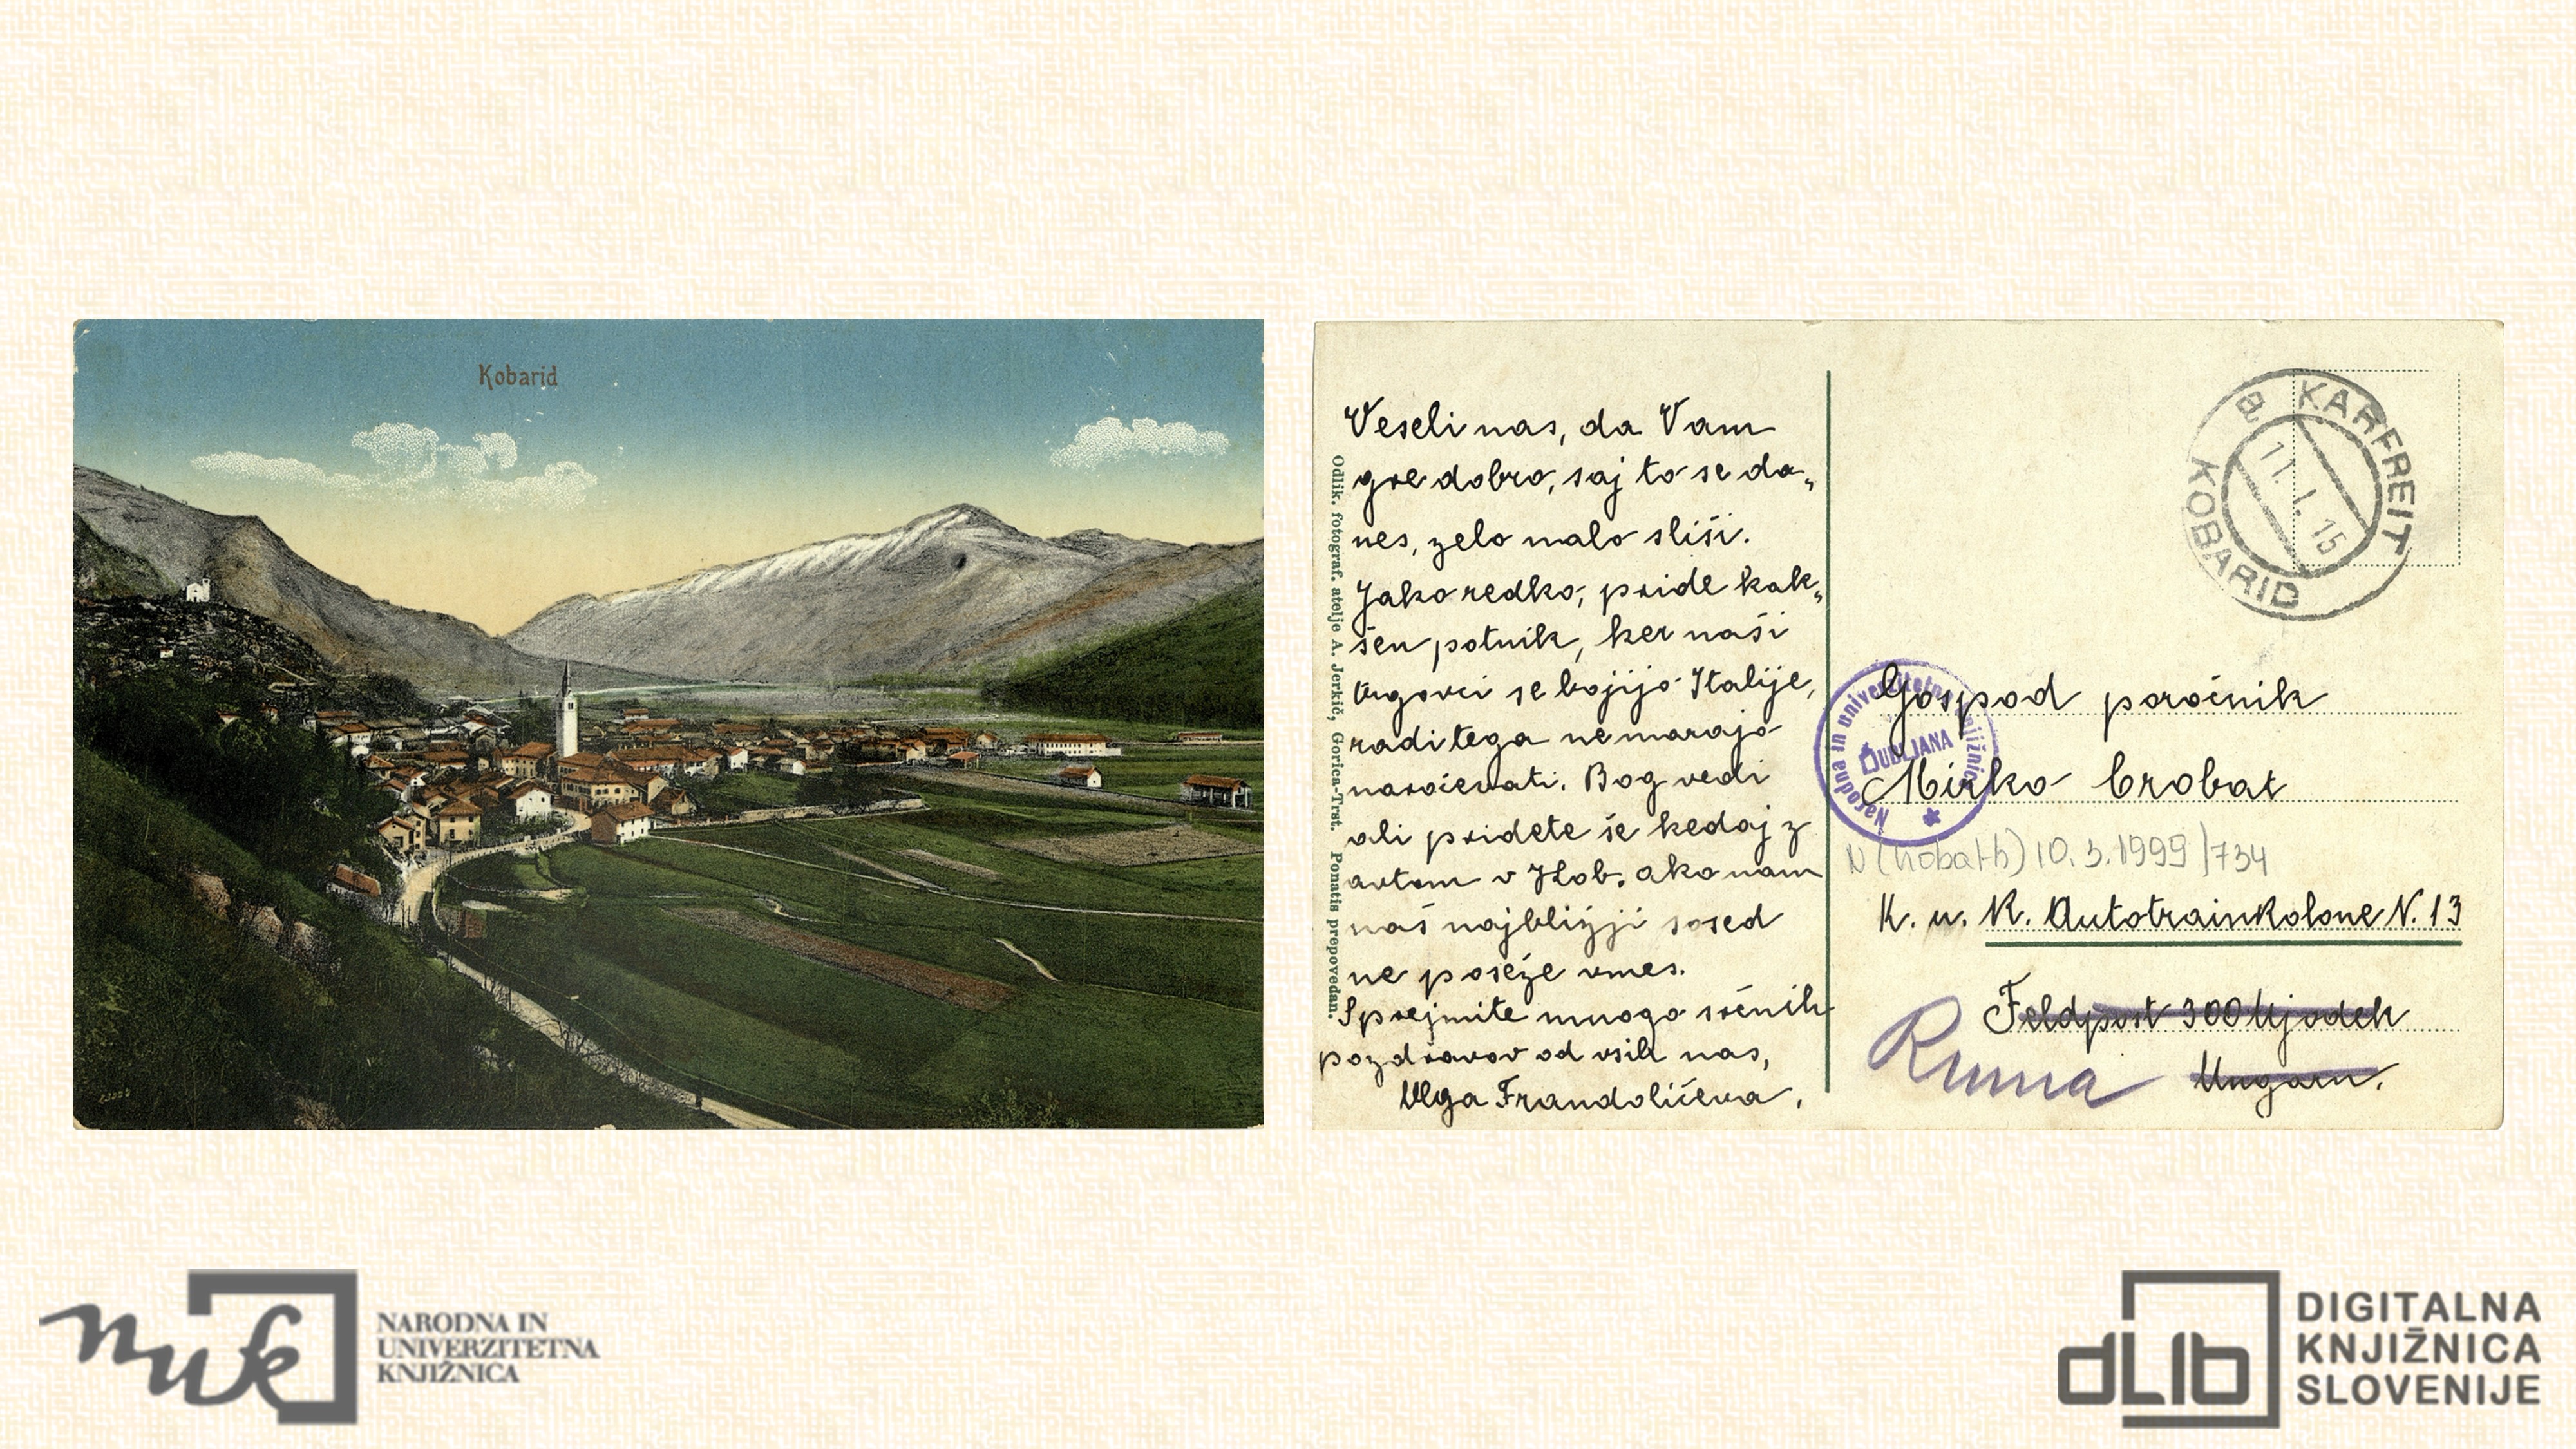 Kobarid
Veseli nas, da Vam
gre dobro, saj to se da„
nes, zelo malo sliši.
Jako redko, pride kak„
šen potnik, ker naši
trgovci se bojijo Italije,
radi tega ne marajo
naročevati. Bog vedi
ali pridete še kedaj z
avtom v Kob. ako nam
naš najbližji sosed
ne poseže vmes.
Sprejmite mnogo srčnih
pozdravov od vsih nas,
Olga Frandoličeva.
Odlik. fotograf. atelje A. Jerkič, Gorica-Trst. Ponatis prepovedan.
a KARFREIT
11. I. 15
KOBARID
Gospod poročnik
Mirko Crobat
Narodna in univerzitetna knjižnica
LJUBLJANA
N (hobath) 10. 3. 1999/734
K. u. K. Autotrainkolone N. 13
Feldpost 300 Ujvidek
Ruma Ungarn.
nuk
NARODNA IN
UNIVERZITETNA
KNJIŽNICA
dLib
DIGITALNA
KNJIŽNICA
SLOVENIJE